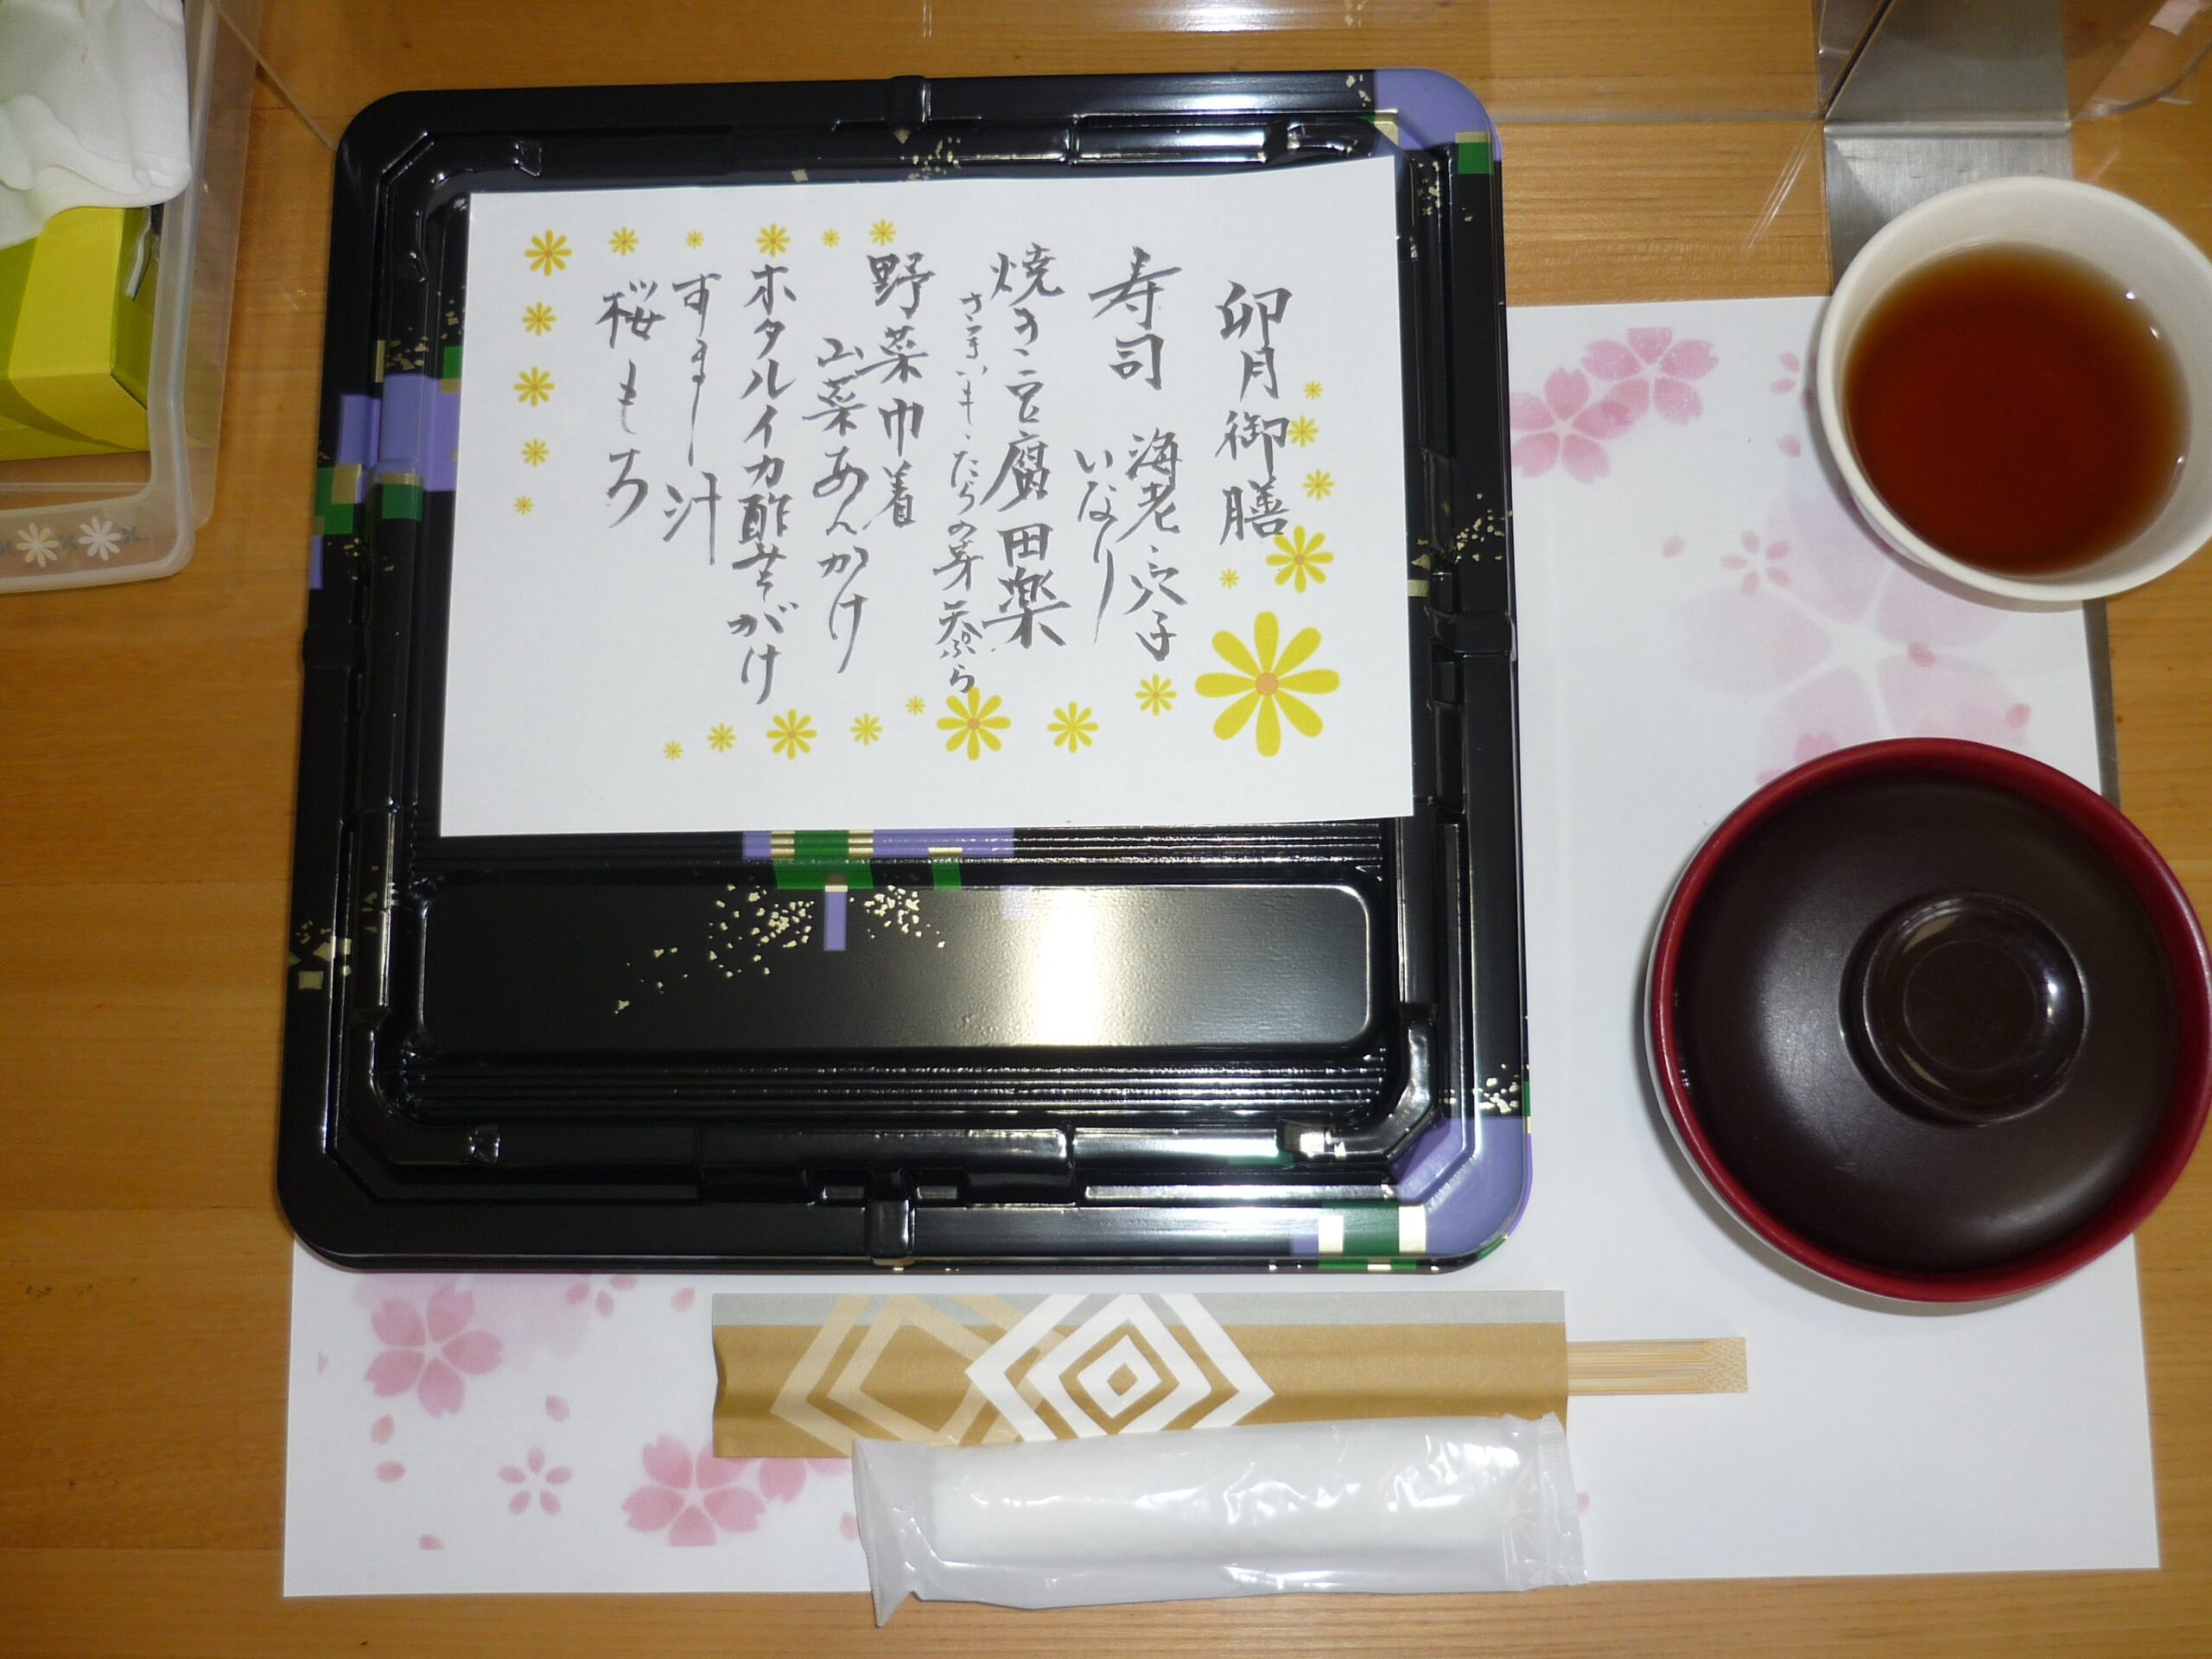 卯月御膳
寿司 海老、穴子
いなり
焼き豆腐田楽
さつまいも・たらの芽天ぷら
野菜巾着
山菜あんかけ
ホタルイカ酢みそがけ
すまし汁
桜もち